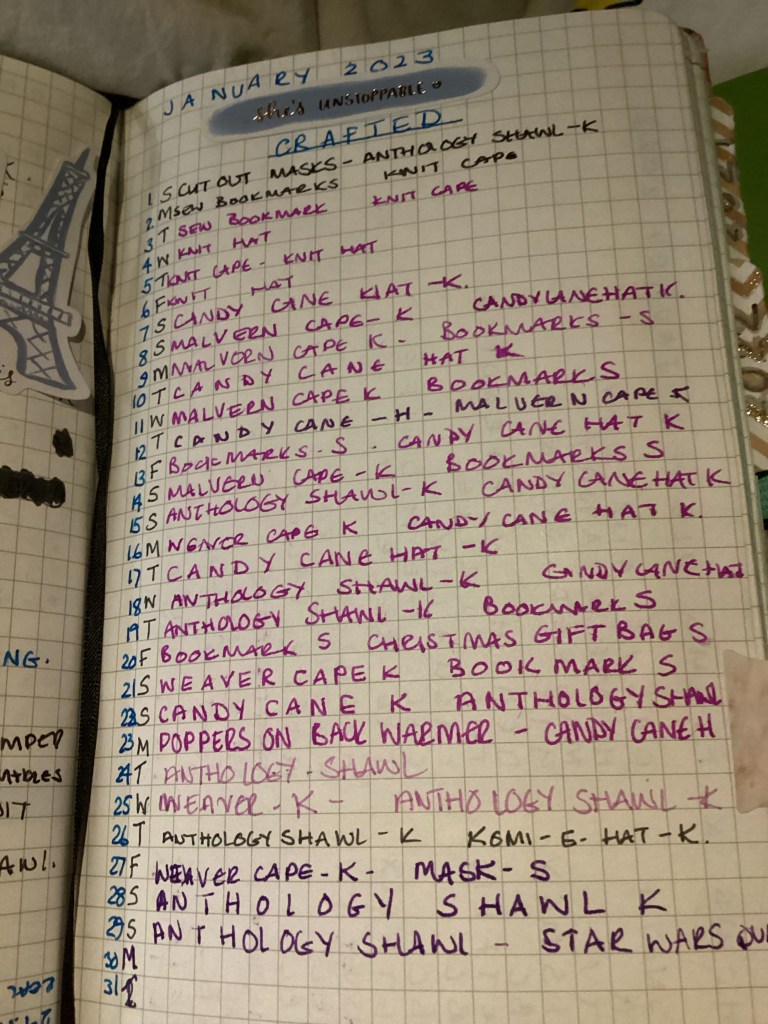 JANUARY 2023
she's UNSTOPPABLE
CRAFTED
1 S CUT OUT MASKS - ANTHOLOGY SHAWL - K
2 M SEW BOOKMARKS KNIT CAPE
3 T SEW BOOKMARK KNIT CAPE
4 W KNIT HAT
5 T KNIT CAPE - KNIT HAT
6 F KNIT HAT
7 S CANDY CANE HAT - K.
8 S MALVERN CAPE - K CANDY CANE HAT K.
9 M MALVORN CAPE K - BOOKMARKS - S
10 T CANDY CANE HAT K
11 W MALVERN CAPE K BOOKMARK S
12 T CANDY CANE - H - MALVERN CAPE K
13 F BOOKMARKS - S . CANDY CANE HAT K
14 S MALVERN CAPE - K BOOKMARKS S
15 S ANTHOLOGY SHAWL - K CANDY CANE HAT K
16 M CAPE K CANDY CANE HAT K.
17 T CANDY CANE HAT - K
18 W ANTHOLOGY SHAWL - K CANDY CANE HAT
19 T ANTHOLOGY SHAWL - K BOOKMARK S
20 F BOOKMARK S CHRISTMAS GIFT BAG S
21 S WEAVER CAPE K BOOK MARK S
22 S CANDY CANE K ANTHOLOGY SHAWL
23 M POPPERS ON BACK WARMER - CANDY CANE H
24 T ANTHOLOGY - SHAWL
25 W WEAVER - K - ANTHOLOGY SHAWL - K
26 T ANTHOLOGY SHAWL - K KEMI - E - HAT - K.
27 F WEAVER CAPE - K - MASK - S
28 S ANTHOLOGY SHAWL K
29 S ANTHOLOGY SHAWL - STAR WARS
30 M
31
K.
NG.
MPED
IT
AWL.